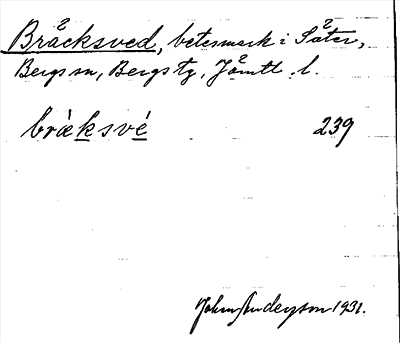 Bräcksved, betesmark i Säter,
Bergs sn, Bergs tg, Jämtl. l.
bràksvé 239
John Anderson 1931.